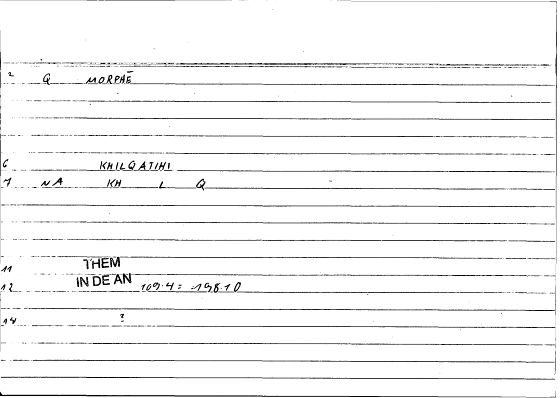 2 Q MORPHĒ
6 KHILQATIHI
7 NA KH L Q
11 THEM
12 IN DE AN 109.4 = 198.10
14 ?